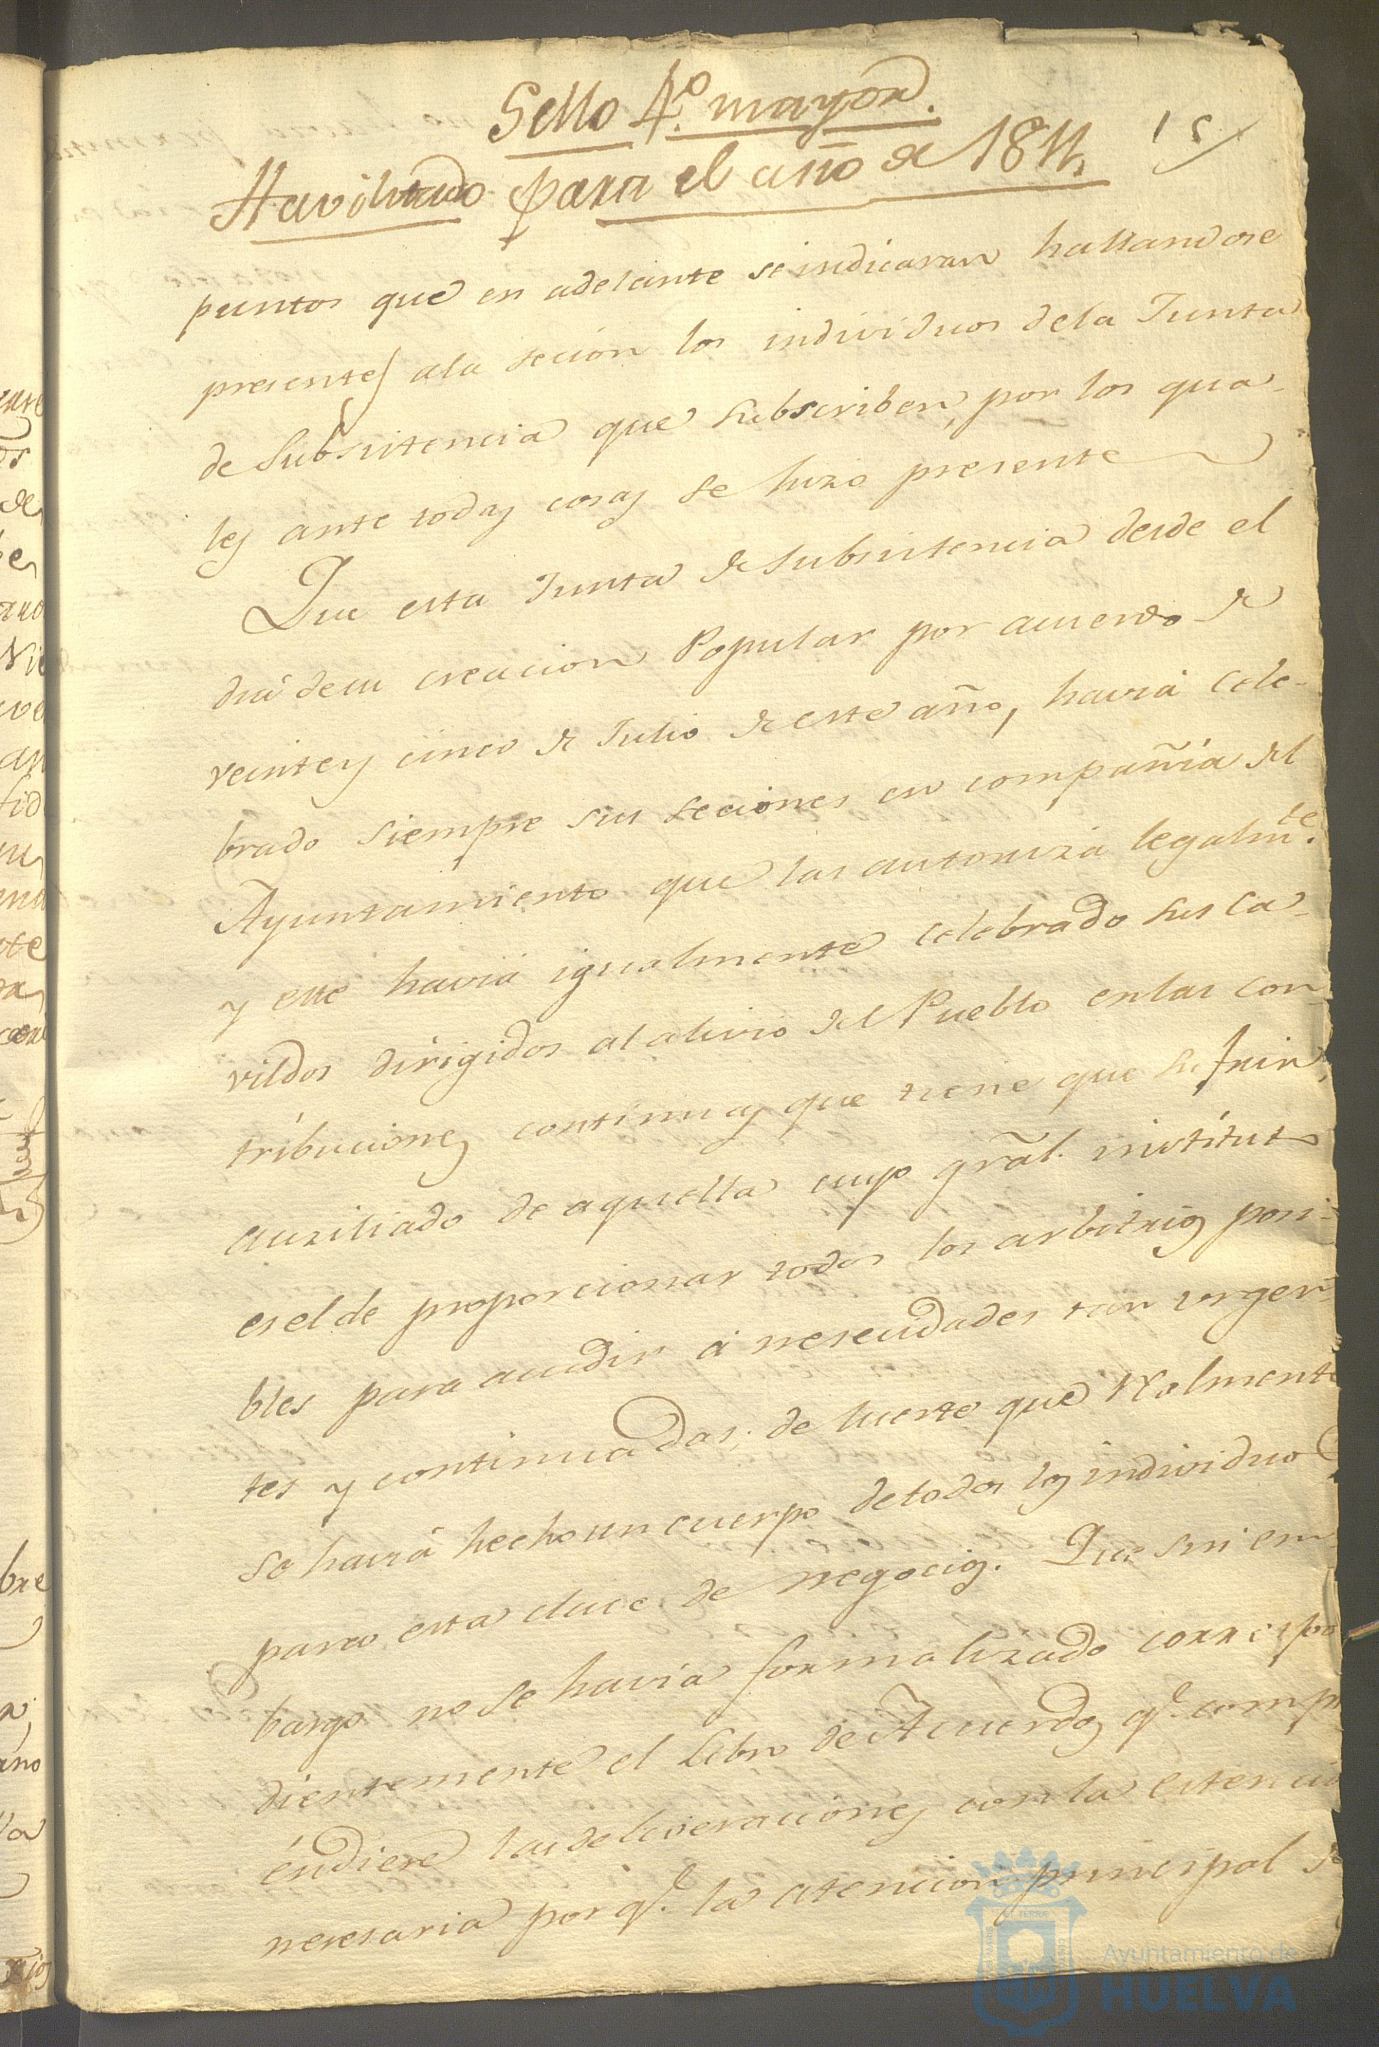 Sello 4.º mayor.
Havilitado para el año de 1811.
15
puntos que en adelante se indicaran hallandose
presentes ala secion los individuos dela Junta
de Subsistencia que subscriben, por los qua-
les ante todas cosas se hizo presente
Que esta Junta de Subsistencia desde el
dia desu creacion Popular por acuerdo de
veinte y cinco de Julio de este año, havia cele-
brado siempre sus seciones en compañia del
Ayuntamiento que las autoriza legalmte.
y este havia igualmente celebrado sus Ca-
vildos dirigidos al alivio del Pueblo enlas con
tribuciones continuas que tiene que sufrir,
auxiliado de aquella cuyo gral. instituto
es el de proporcionar todos los arbitrios posi-
bles para acudir á nesecidades tan urgen-
tes y continuadas; de suerte que Realmente
se havia hecho un cuerpo de todos los individuos
para esta clace de negocios. Que sin em-
bargo no se havia formalizado correspon
dientemente el Libro de Acuerdos q.e compr
éndiere las deliveraciones con la estencion
nesesaria por q.e la atencion principal se
Ayuntamiento de
HUELVA